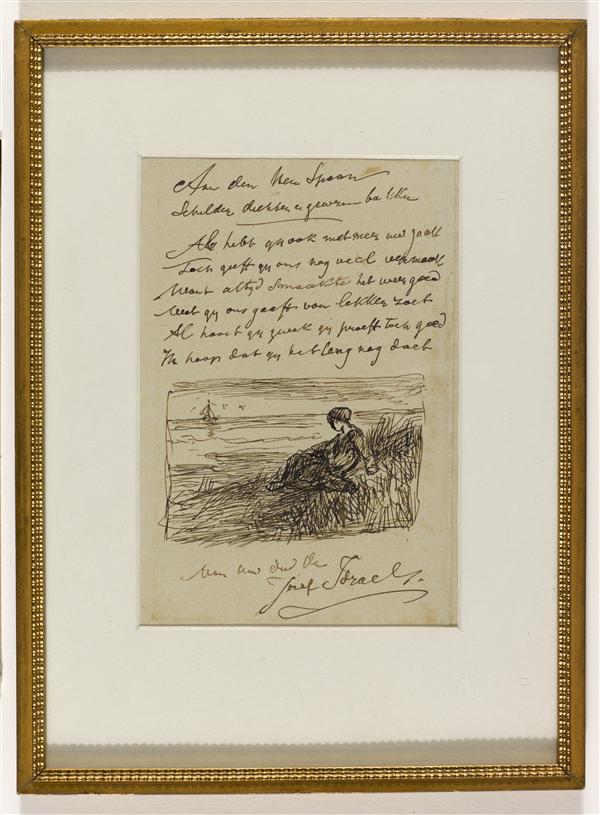 Aan den Heer Spaan
Schilder dichter en gewezen bakker
Al hebt gij ook niet meer uw zaak
Toch geeft gij ons nog veel vermaak
Want altijd smaakte het weer goed
Wat gij ons gaaft van lekker zoet
Al hoort gij zwak gij proeft toch goed
Ik hoop dat gij het lang nog doet
Van uw oud
Jozef Israels.